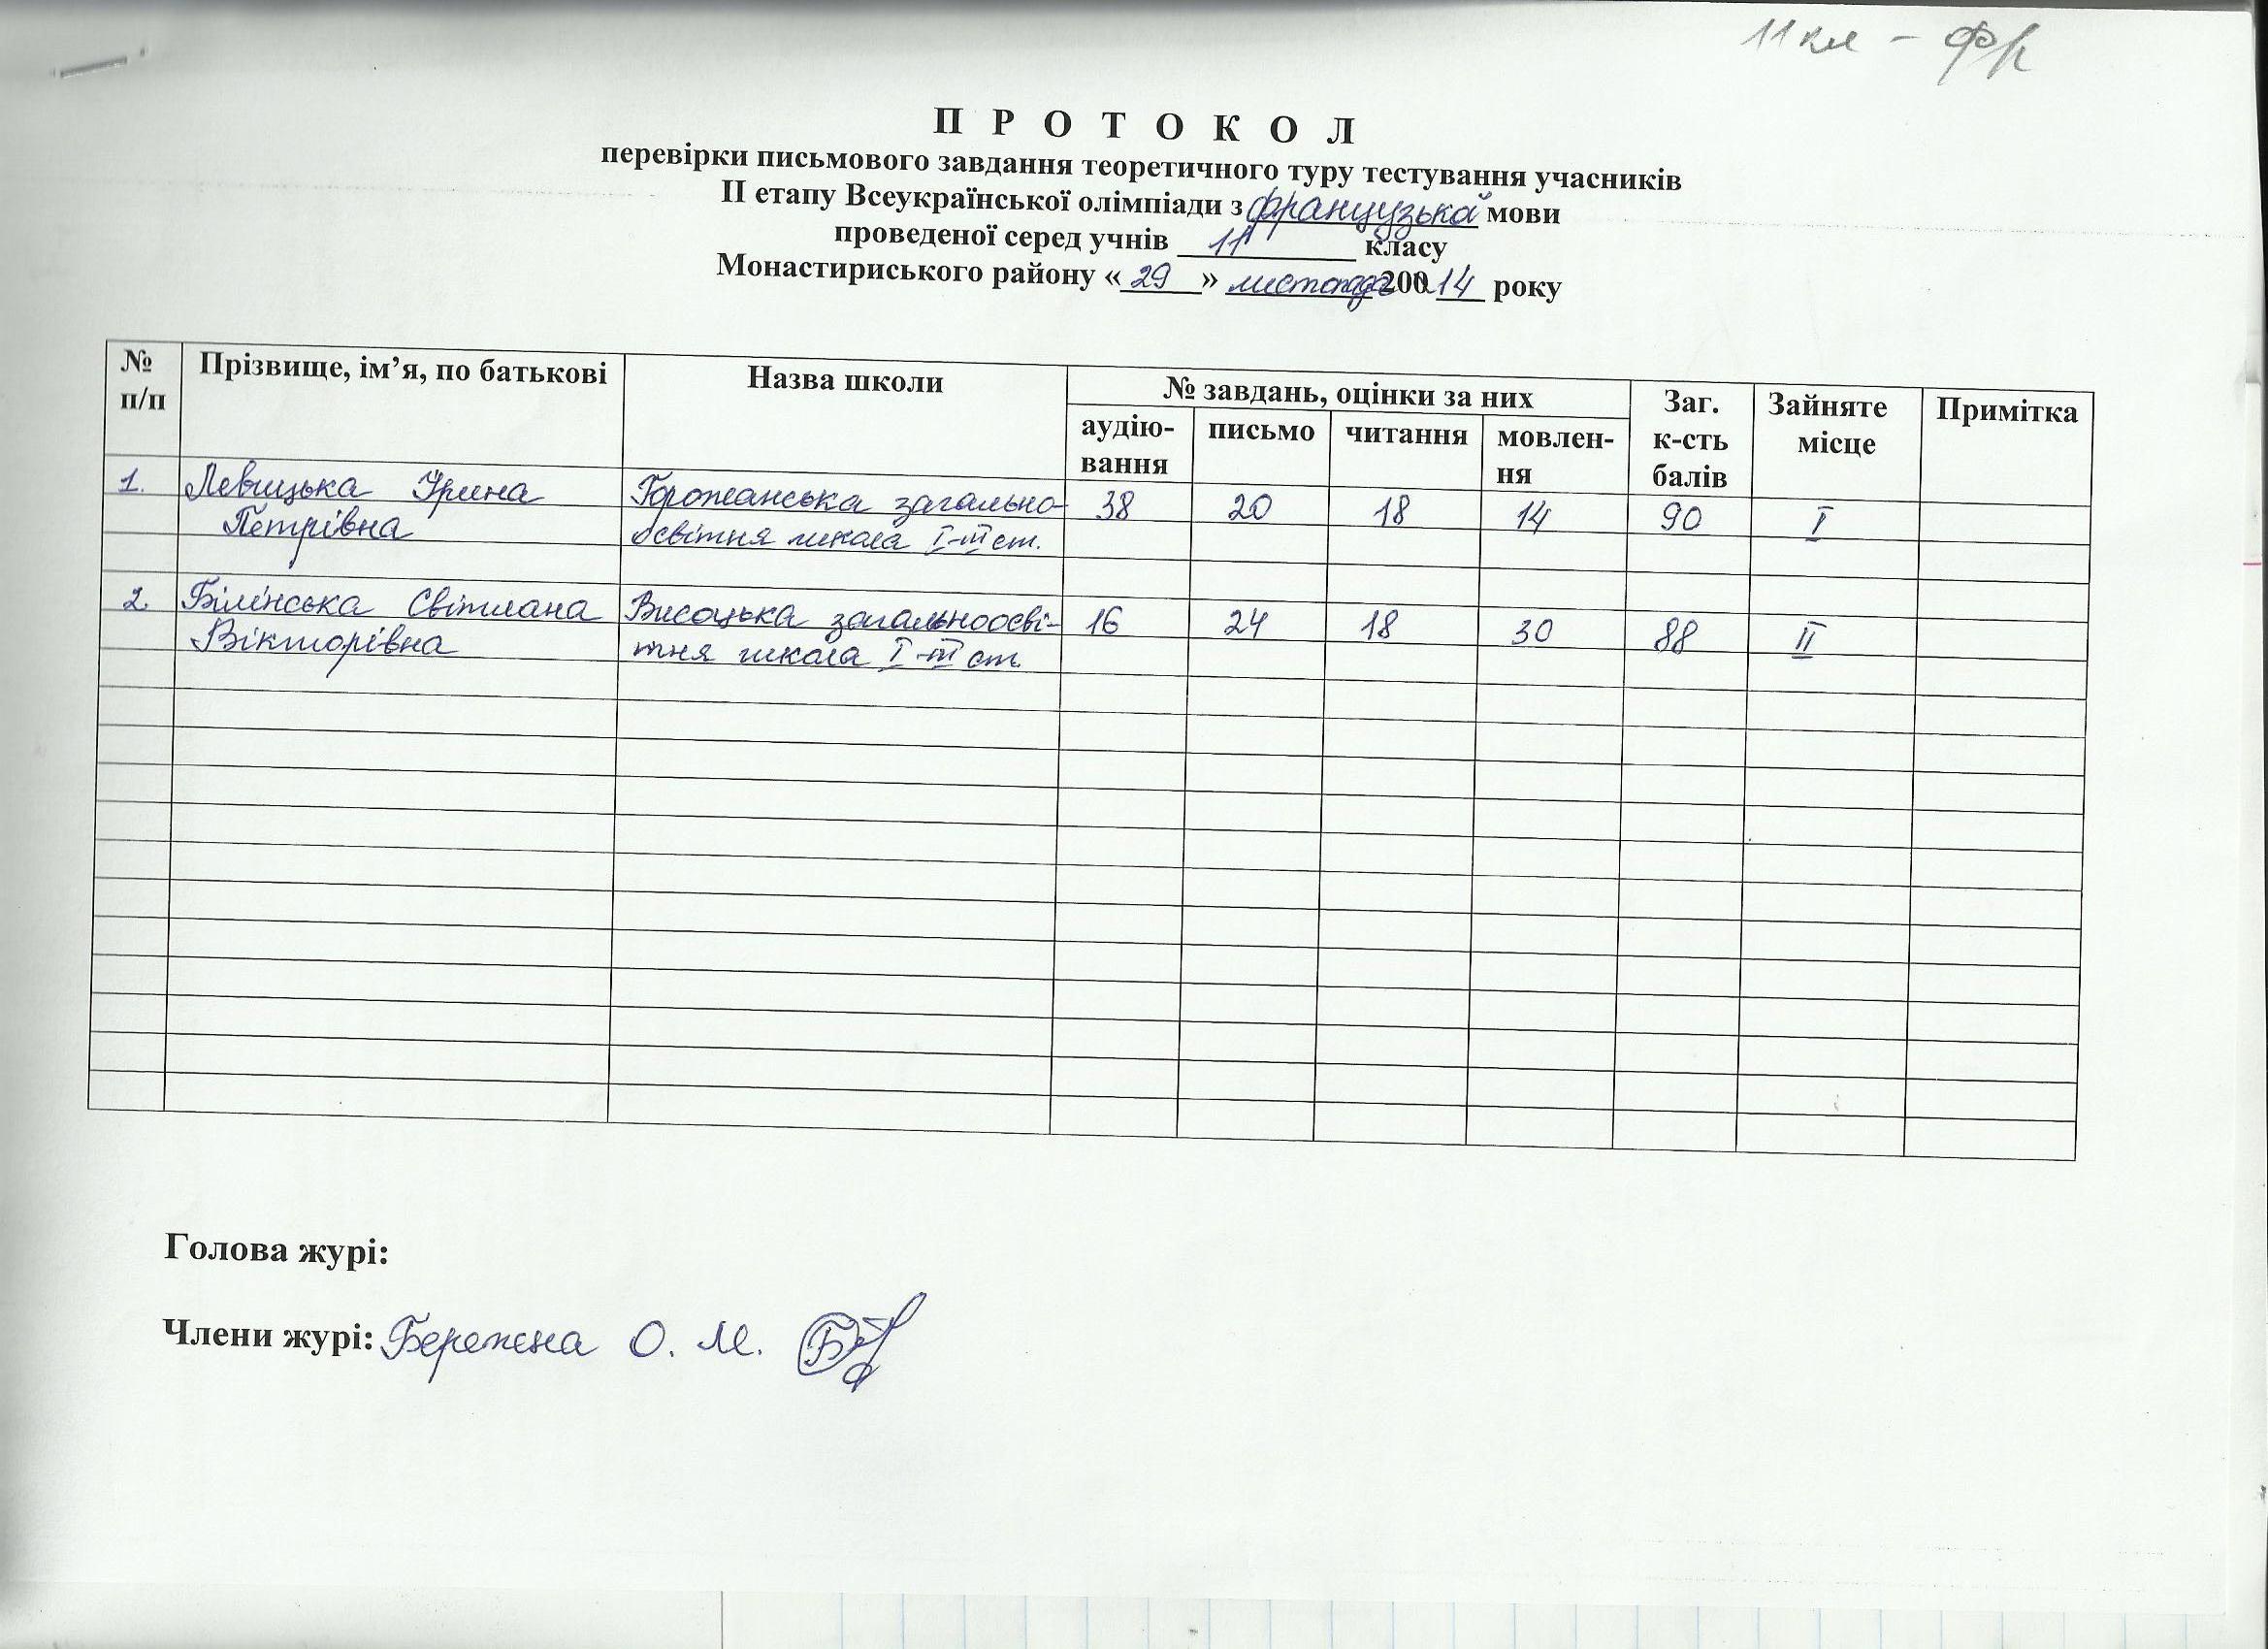 11 кл - фр
П Р О Т О К О Л
перевірки письмового завдання теоретичного туру тестування учасників
ІІ етапу Всеукраїнської олімпіади з французької мови
проведеної серед учнів 11 класу
Монастириського району «29» листопада 2014 року
№ п/п Прізвище, ім’я, по батькові Назва школи № завдань, оцінки за них Заг. к-сть балів Зайняте місце Примітка
аудію-вання письмо читання мовлен-ня
1. Левицька Ірина Горожанська загально- 38 20 18 14 90 І
Петрівна освітня школа І-ІІІ ст.
2. Білінська Світлана Висоцька загальноосві- 16 24 18 30 88 ІІ
Вікторівна тня школа І-ІІІ ст.
Голова журі:
Члени журі: Бережна О. М.